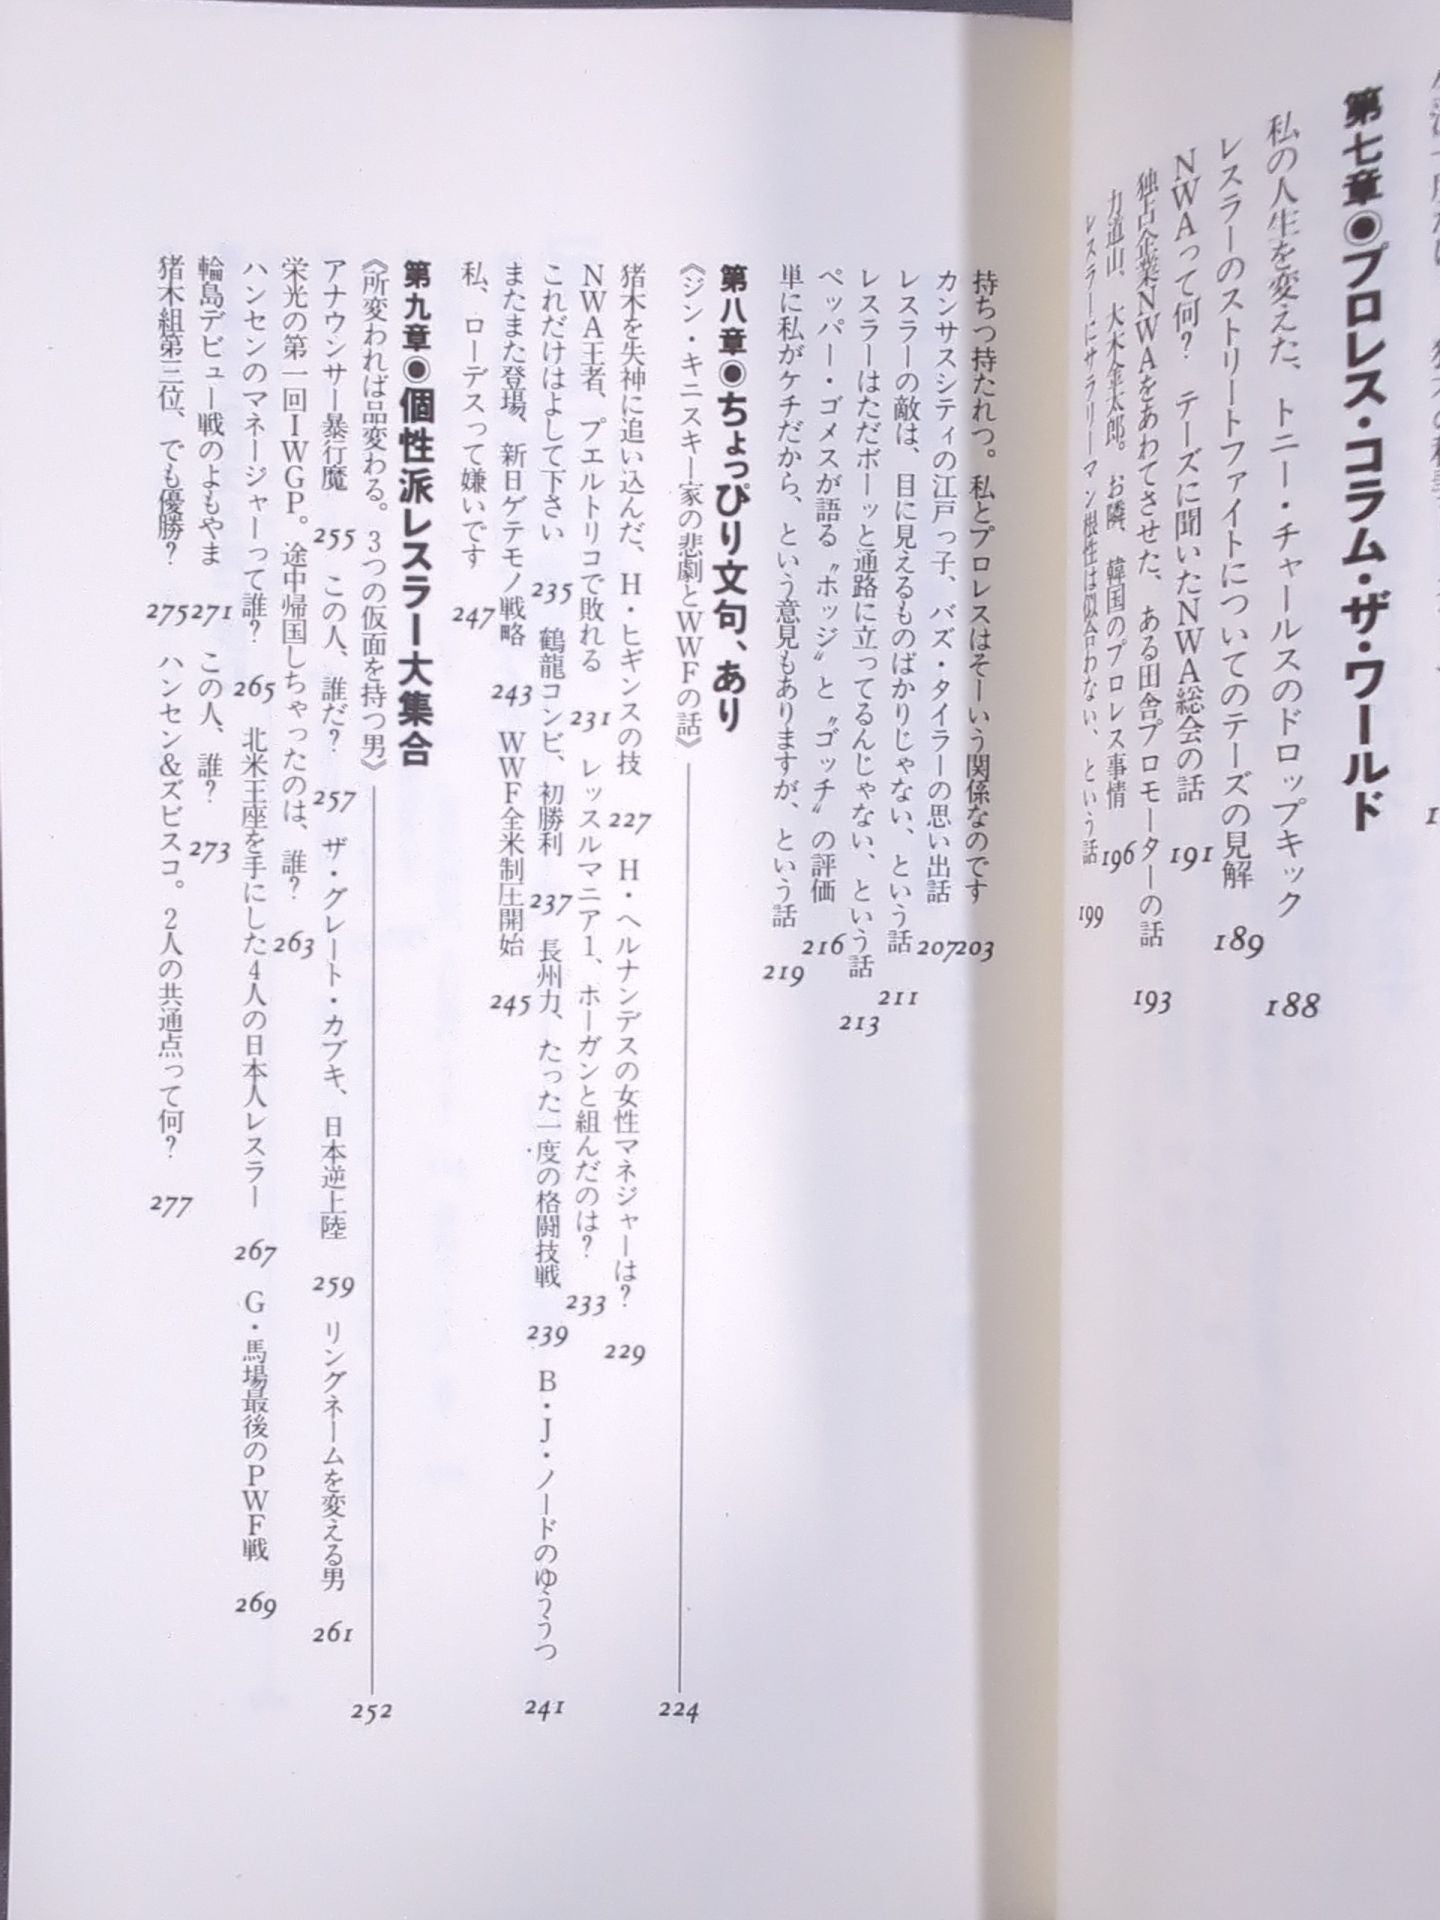 第七章◉プロレス・コラム・ザ・ワールド
私の人生を変えた、トニー・チャールスのドロップキック 188
レスラーのストリートファイトについてのテーズの見解 189
NWAって何? テーズに聞いたNWA総会の話 191
独占企業NWAをあわてさせた、ある田舎プロモーターの話 193
力道山、大木金太郎。お隣、韓国のプロレス事情 196
レスラーにサラリーマン根性は似合わない、という話 199
持ちつ持たれつ。私とプロレスはそーいう関係なのです 203
カンサスシティの江戸っ子、バズ・タイラーの思い出話 207
レスラーの敵は、目に見えるものばかりじゃない、という話 211
レスラーはただボーッと通路に立ってるんじゃない、という話 213
ペッパー・ゴメスが語る〝ホッジ〟と〝ゴッチ〟の評価 216
単に私がケチだから、という意見もありますが、という話 219
第八章◉ちょっぴり文句、あり
《ジン・キニスキー家の悲劇とWWFの話》 224
猪木を失神に追い込んだ、H・ヒギンスの技 227 H・ヘルナンデスの女性マネジャーは? 229
NWA王者、プエルトリコで敗れる 231 レッスルマニア1、ホーガンと組んだのは? 233
これだけはよして下さい 235 鶴龍コンビ、初勝利 237 長州力、たった一度の格闘技戦 239 B・J・ノードのゆううつ 241
またまた登場、新日ゲテモノ戦略 243 WWF全米制圧開始 245
私、ローデスって嫌いです 247
第九章◉個性派レスラー大集合
《所変われば品変わる。3つの仮面を持つ男》 252
アナウンサー暴行魔 255 この人、誰だ? 257 ザ・グレート・カブキ、日本逆上陸 259 リングネームを変える男 261
栄光の第一回IWGP。途中帰国しちゃったのは、誰? 263
ハンセンのマネージャーって誰? 265 北米王座を手にした4人の日本人レスラー 267 G・馬場最後のPWF戦 269
輪島デビュー戦のよもやま 271 この人、誰? 273
猪木組第三位、でも優勝? 275 ハンセン&ズビスコ。2人の共通点って何? 277